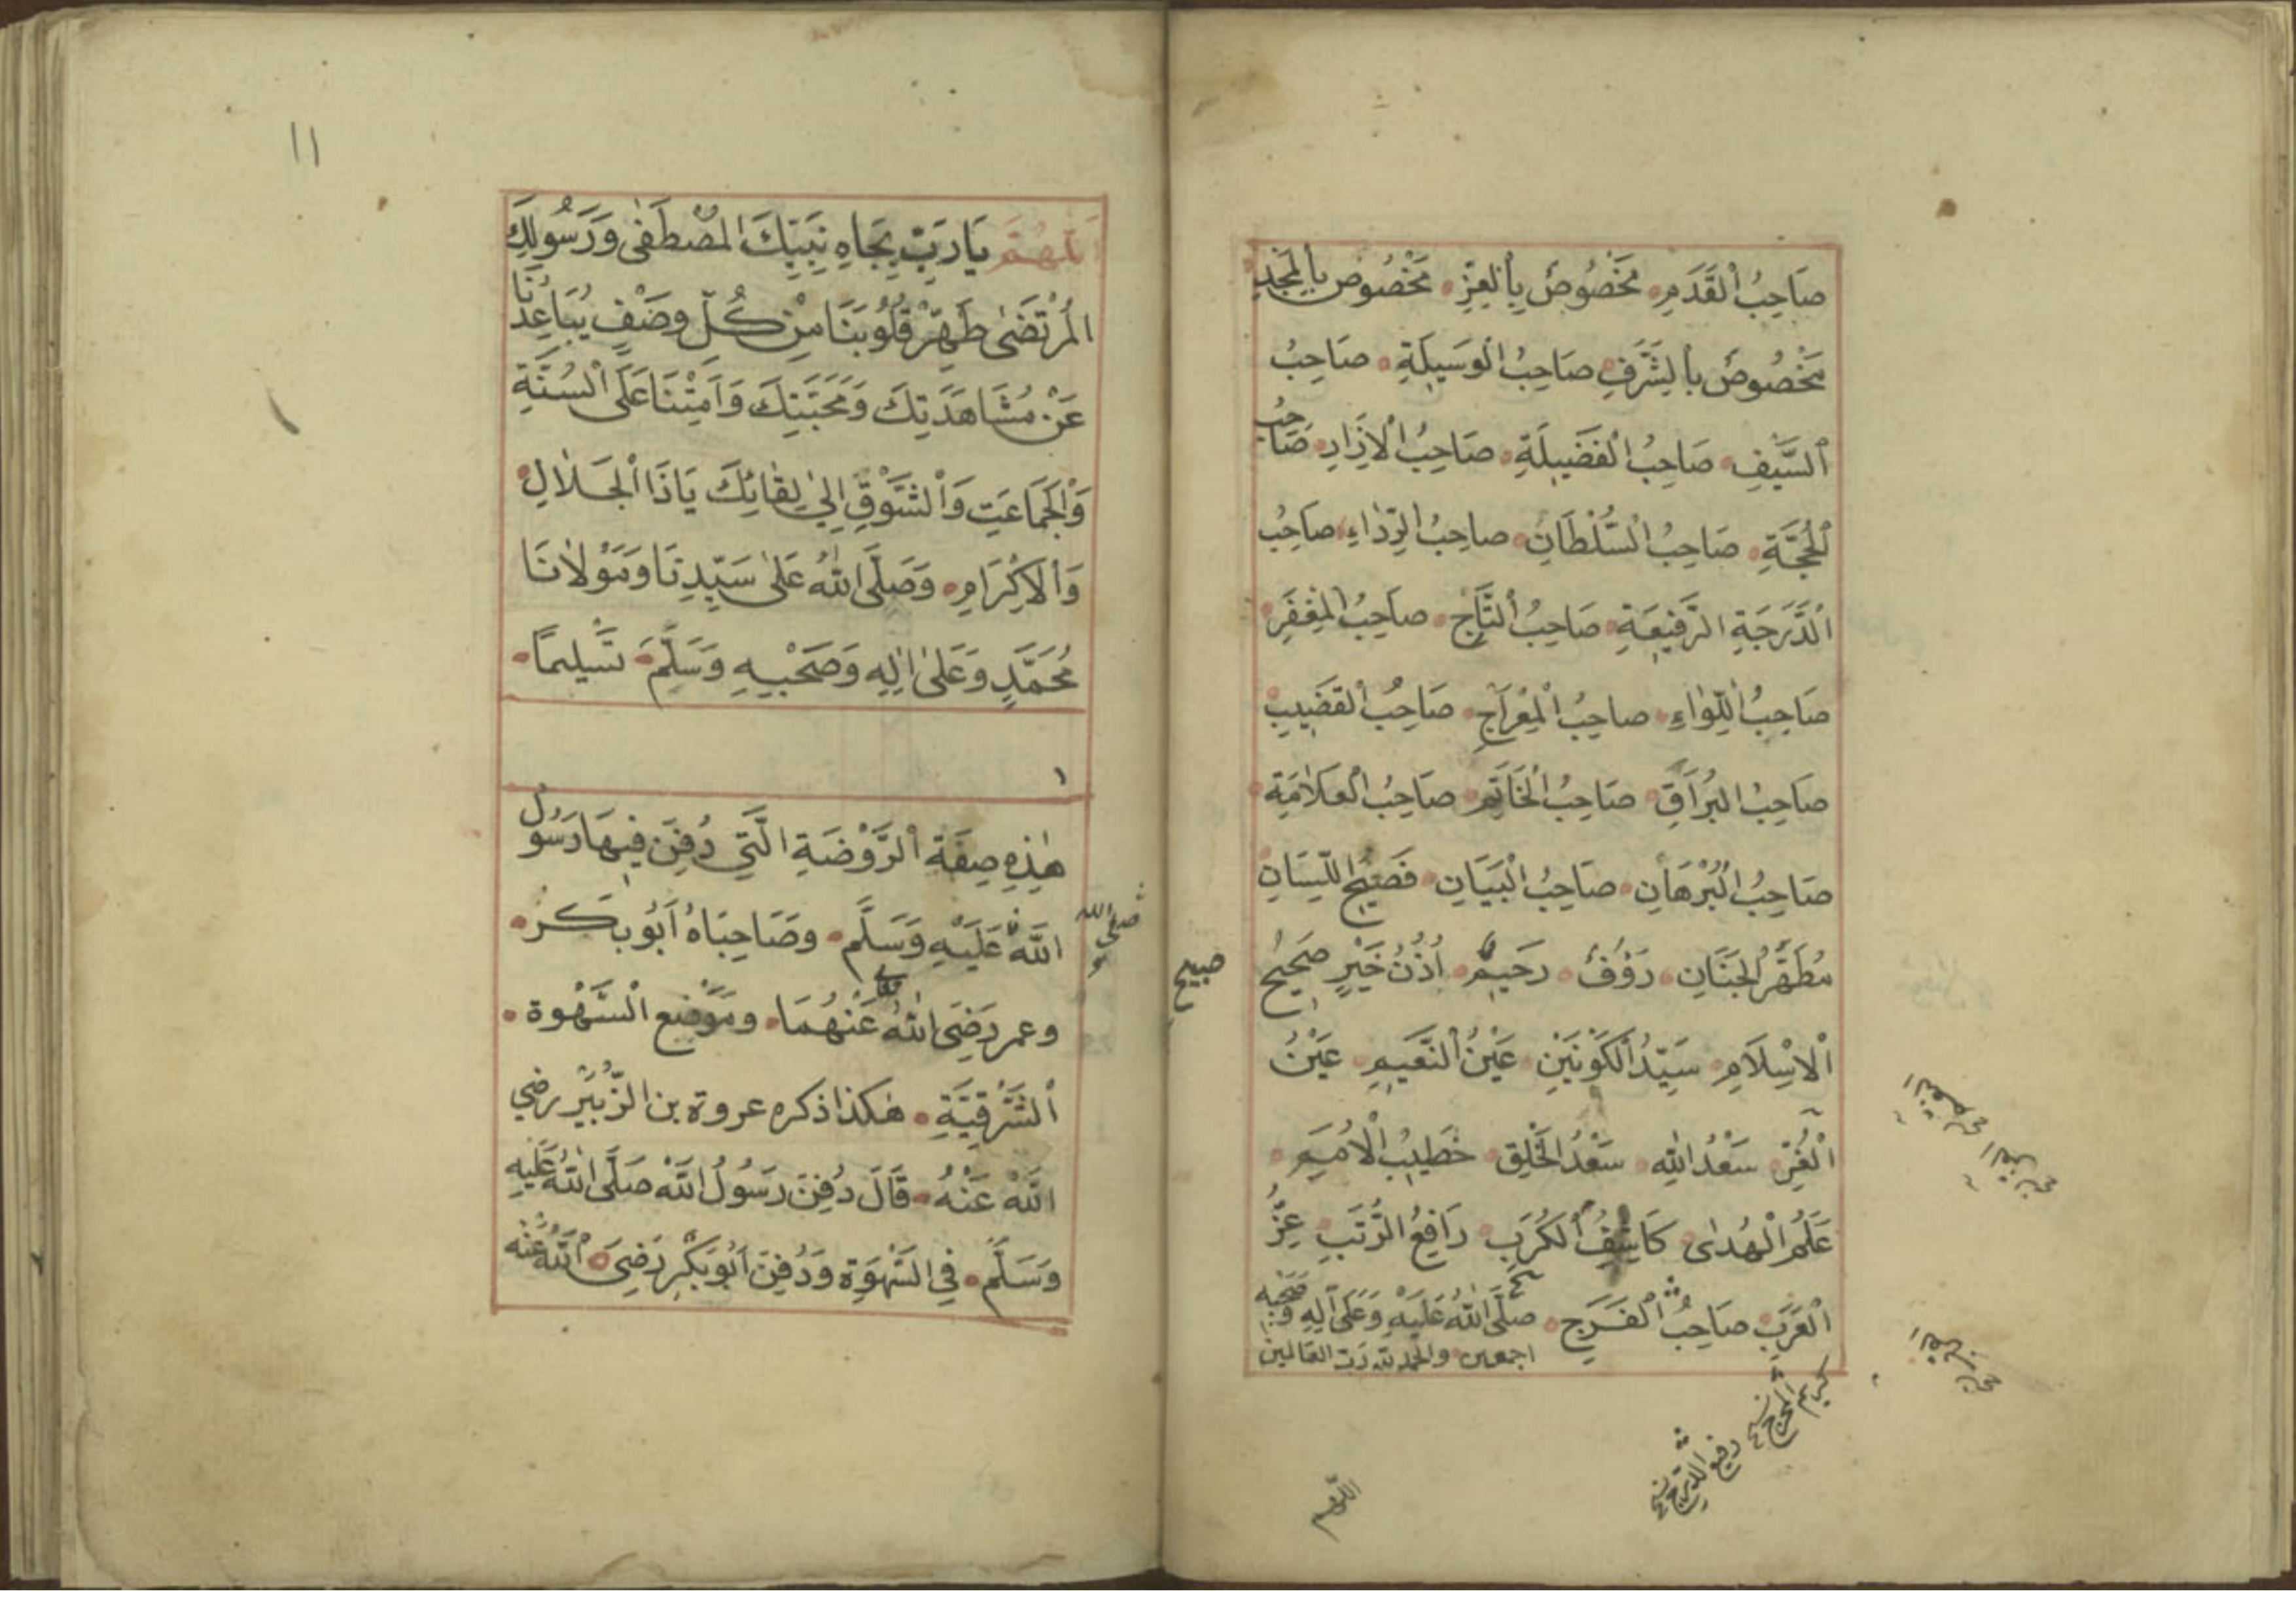 صَاحِبُ الْقَدَمِ مَخْصُوصٌ بِالْعِزِّ مَخْصُوصٌ بِالْمَجْدِ
مَخْصُوصٌ بِالشَّرَفِ صَاحِبُ الْوَسِيلَةِ صَاحِبُ
السَّيْفِ صَاحِبُ الْفَضِيلَةِ صَاحِبُ الْاِزَارِ صَاحِبُ
الْحُجَّةِ صَاحِبُ السُّلْطَانِ صَاحِبُ الرِّدَاءِ صَاحِبُ
الدَّرَجَةِ الرَّفِيعَةِ صَاحِبُ التَّاجِ صَاحِبُ الْمِغْفَرِ
صَاحِبُ اللِّوَاءِ صَاحِبُ الْمِعْرَاجِ صَاحِبُ الْقَضِيبِ
صَاحِبُ الْبُرَاقِ صَاحِبُ الْخَاتَمِ صَاحِبُ الْعَلَامَةِ
صَاحِبُ الْبُرْهَانِ صَاحِبُ الْبَيَانِ فَصِيحُ اللِّسَانِ
مُطَهَّرُ الْجَنَانِ رَؤُفٌ رَحِيمٌ اُذُنُ خَيْرٍ صَحِيحُ
صبيح
الْاِسْلَامِ سَيِّدُ الْكَوْنَيْنِ عَيْنُ النَّعِيمِ عَيْنُ
الْغُرِّ سَعْدُ اللهِ سَعْدُ الْخَلْقِ خَطِيبُ الْاُمَمِ
عَلَمُ الْهُدٰى كَاشِفُ الْكُرَبِ رَافِعُ الرُّتَبِ عِزُّ
الْعَرَبِ صَاحِبُ الْفَرَجِ صَلَّى اللهُ عَلَيْهِ وَعَلَى آلِهِ وَصَحْبِهِ
اجمعين والحمد لله رَبّ العَالمين
كريم المخرج
رفيع الدرج
اللهم
١١
اَللّٰهُمَّ يَا رَبِّ بِجَاهِ نَبِيِّكَ الْمُصْطَفٰى وَرَسُولِكَ
الْمُرْتَضٰى طَهِّرْ قُلُوبَنَا مِنْ كُلِّ وَصْفٍ يُبَاعِدُنَا
عَنْ مُشَاهَدَتِكَ وَمَحَبَّتِكَ وَاَمِتْنَا عَلَى السُّنَّةِ
وَالْجَمَاعَتِ وَالشَّوْقِ اِلٰى لِقَائِكَ يَاذَا الْجَلَالِ
وَالْاِكْرَامِ وَصَلَّى اللهُ عَلٰى سَيِّدِنَا وَمَوْلَانَا
مُحَمَّدٍ وَعَلٰى اٰلِهِ وَصَحْبِهِ وَسَلَّمَ تَسْلِيمًا
هٰذِهِ صِفَةُ الرَّوْضَةِ الَّتِي دُفِنَ فِيهَا رَسُولُ
صلى الله
اللهِ عَلَيْهِ وَسَلَّمَ وَصَاحِبَاهُ اَبُو بَكَر
وعمر رَضِيَ اللهُ عَنْهُمَا وَمَوْضِع السَّهْوَة
الشَّرْقِيَّةِ هٰكذا ذكره عروة بن الزُّبَيْر رضي
اللهُ عَنْهُ قَالَ دُفِنَ رَسُولُ اللهِ صَلَّى اللهُ عَلَيْهِ
وَسَلَّمَ فِي السَّهْوَةِ وَدُفِنَ اَبُو بَكْرٍ رَضِيَ اللهُ عَنْه